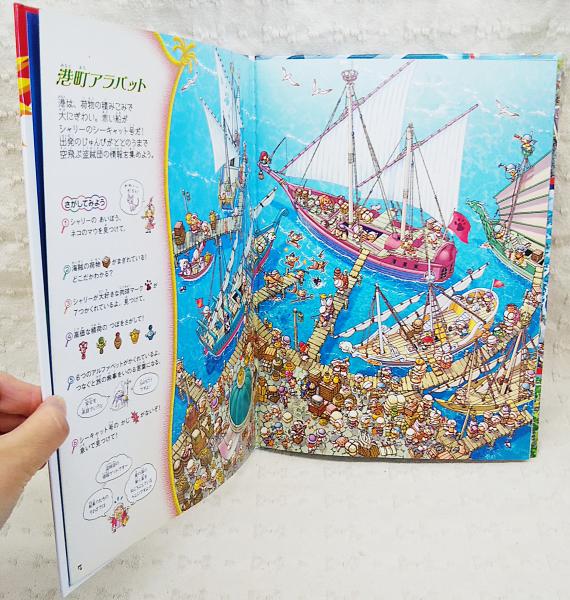 港町アラバット
港は、荷物の積みこみで
大にぎわい。赤い船が
シャリーのシーキャット号だ!
出発のじゅんびがととのうまで
空飛ぶ盗賊団の情報を集めよう。
さがしてみよう
1 シャリーの あいぼう、
ネコのマウを見つけて。
2 海賊の荷物 がまぎれている!
どこだかわかる?
3 シャリーが大好きな肉球マーク が
7つかくれているよ。見つけて。
4 高価な積荷の つぼをさがして!
5 6つのアルファベットがかくれているよ。
つなぐと旅の無事をいのる言葉になる。
6 シーキャット号の かじ がないぞ!
急いで見つけて!